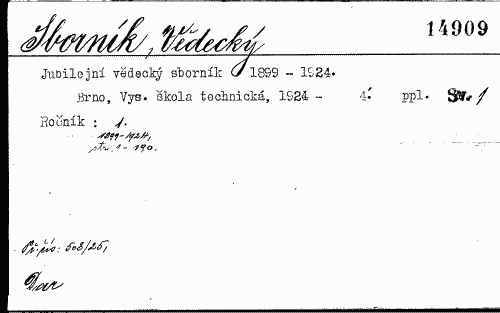 Sborník, Vědecký
14909
Jubilejní vědecký sborník 1899 - 1924.
Brno, Vys. škola technická, 1924 - 4° ppl. Sv. 1
Ročník : 1.
1899-1924,
str. 1-190.
Př. čís: 508/25,
Dar